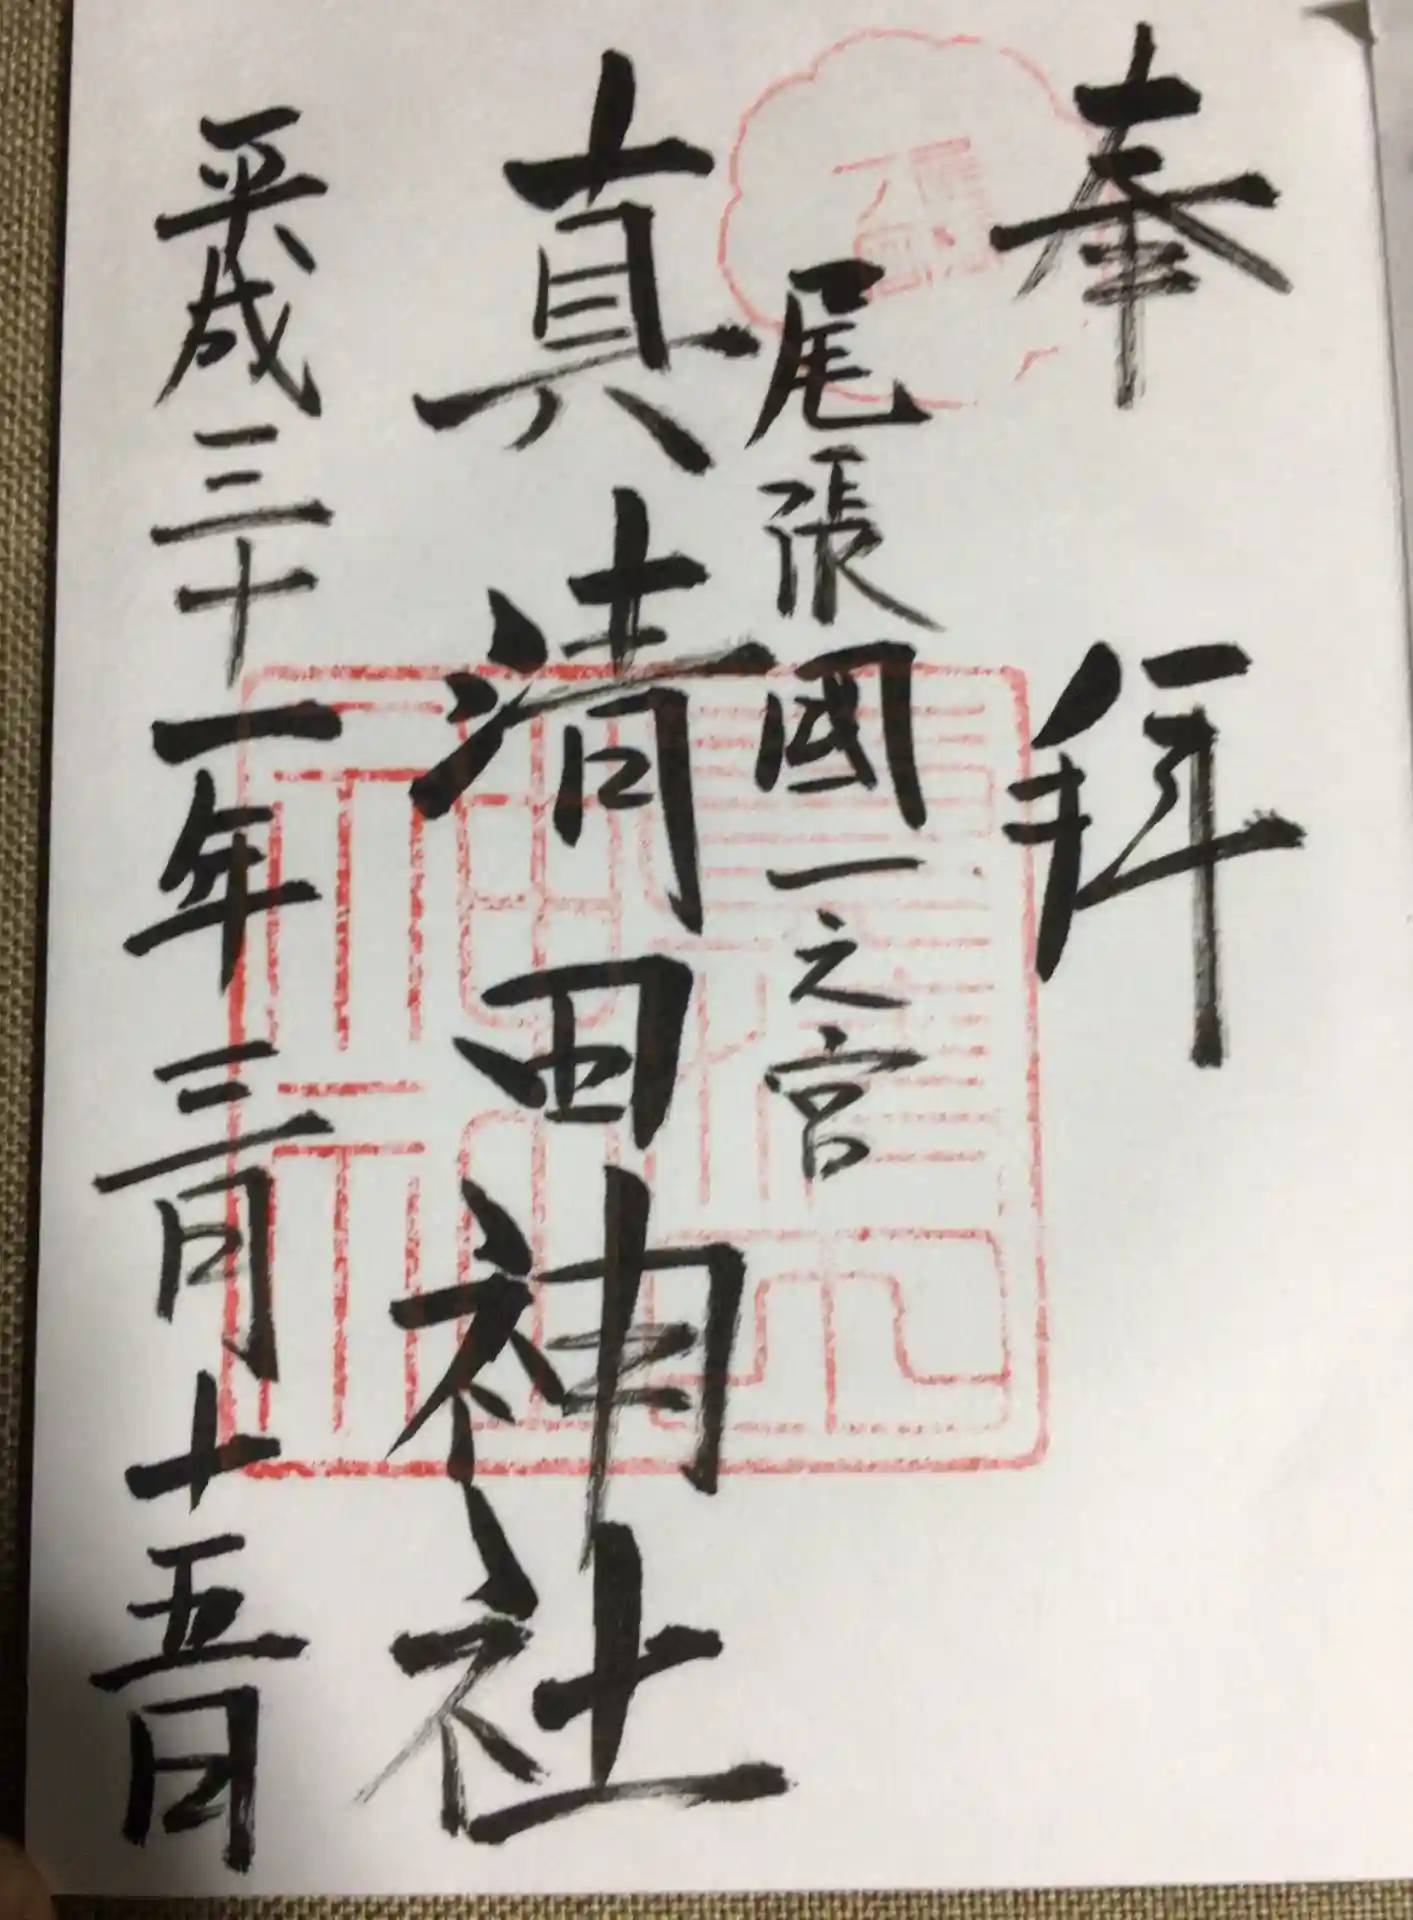 奉拜
尾張國一之宮
真清田神社
平成三十一年三月十五日